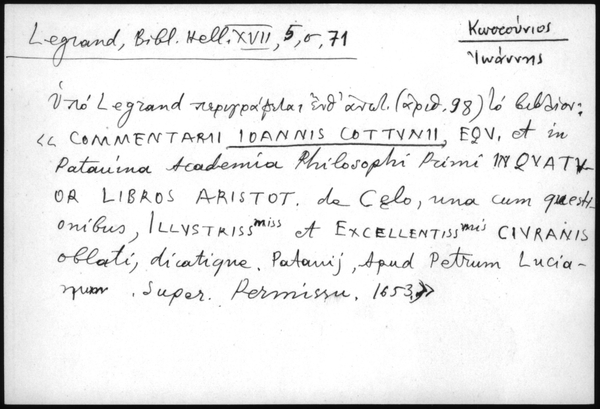 Legrand, Bibl. Hell. XVII, 5, σ, 71
Κωττούνιος
Ἰωάννης
Ὑπό Legrand περιγράφεται ἐνθ' ἀνωτ. (ἀριθ. 98) τό βιβλίον:
« COMMENTARII IOANNIS COTTVNII, EQV. et in
Patauina Academia Philosophi Primi IN QVATV-
OR LIBROS ARISTOT. de Cęlo, una cum quęsti-
onibus, ILLVSTRISSmiss et EXCELLENTISSmis CIVRANIS
oblati, dicatique. Patauij, Apud Petrum Lucia-
num. Super. Permissu. 1653.»